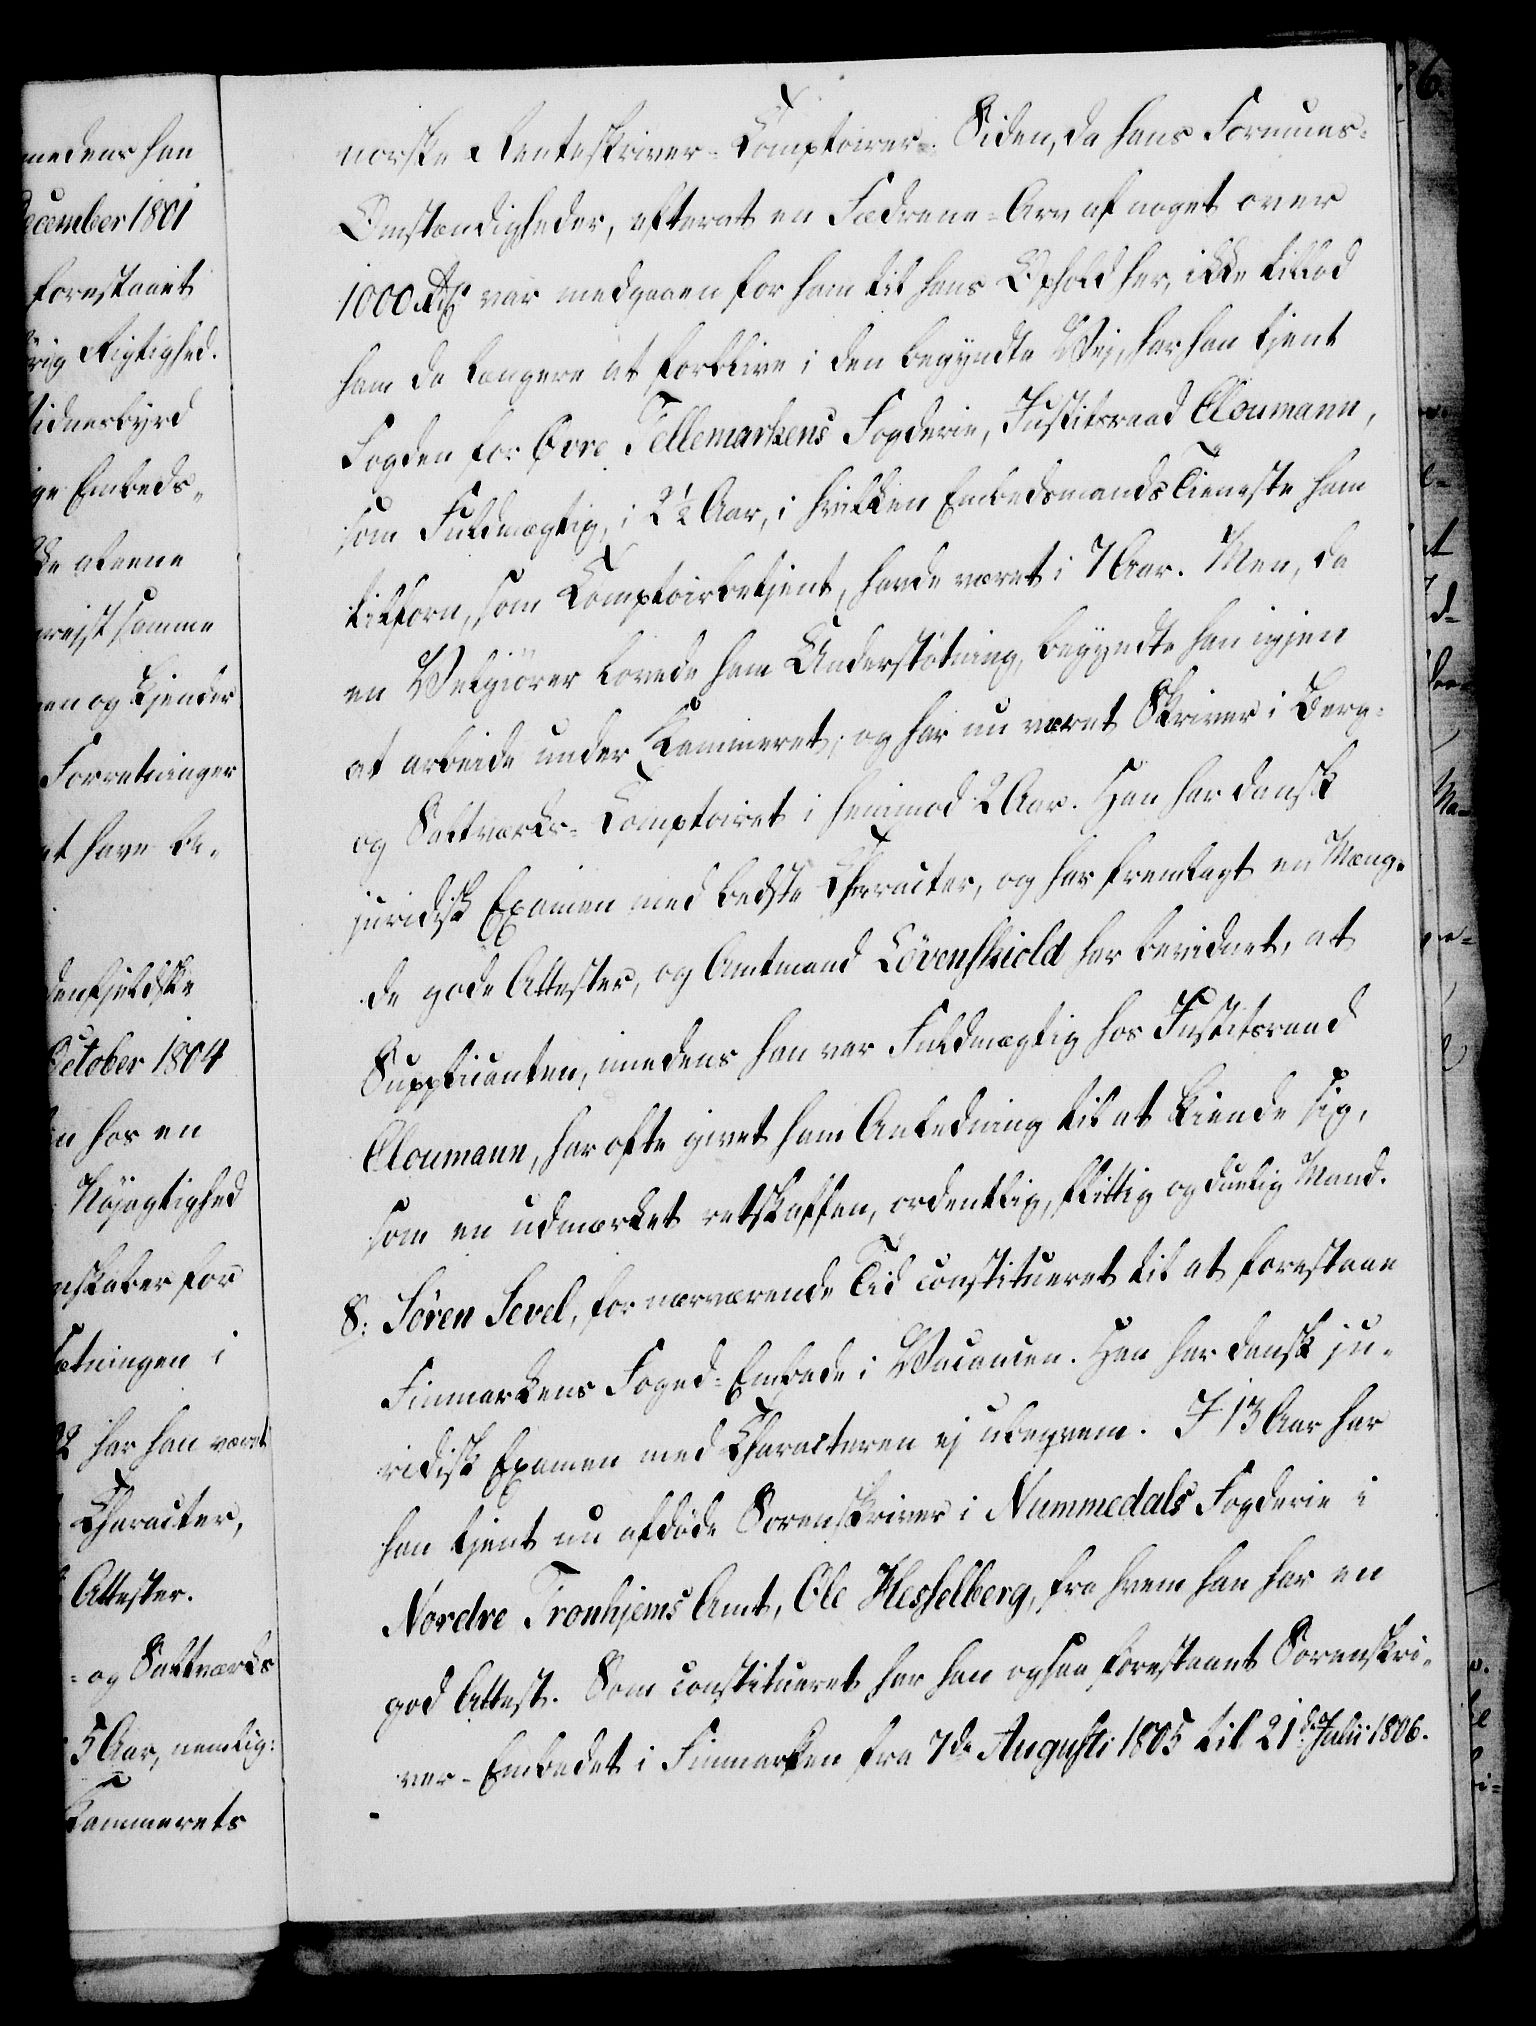 medens han
December 1801
forestaaet
rig Rigtighed.
Vidnesbyrd
ge Embeds-
de alene
rejst samme
en og kjender
Forretninger
at have be-
denfjeldske
October 1804
n hos en
Nøjagtighed
nskaber for
ætningen i
har han været
Character,
Attester.
- og Saltværks
5 Aar, nemlig:
Kammerets
norske Renteskriver-Comptoirer. Siden, da hans Formues-
Omstændigheder, efterat en Fædrene-Arv af noget over
1000 Rd var medgaaen for ham til hans Ophold her, ikke tillod
ham da længere at forblive i den begyndte Vej, har han tjent
Fogden for Øvre Tellemarkens Fogderie, Justitsraad Cloumann,
som Fuldmægtig, i 2½ Aar, i hvilken Embedsmands Tieneste han
tilforn, som Comptoirbetjent, havde været i 7 Aar. Men, da
en Velgiører lovede ham Understøtning, begyndte han igjen
at arbeide under Kammeret; og har nu været Skriver i Berg-
og Saltværks-Comptoiret i henimod 2 Aar. Han har dansk
juridisk Examen med bedste Character, og har fremlagt en Mæng-
de gode Attester, og Amtmand Lövenskiold har bevidnet, at
Supplicanten, imedens han var Fuldmægtig hos Justitsraad
Cloumann, har ofte givet ham Anledning til at kiende sig,
som en udmærket retskaffen, ordentlig, flittig og duelig Mand.
8: Søren Sevel, for nærværende Tid constitueret til at forestaae
Finmarkens Foged-Embede i Vacancen. Han har dansk ju-
ridisk Examen med Characteren ej ubeqvem. I 13 Aar har
han tjent nu afdøde Sorenskriver i Nummedals Fogderie i
Nordre Tronhjems Amt, Ole Hesselberg, fra hvem han har en
god Attest. Som constitueret har han ogsaa forestaaet Sorenskri-
ver-Embedet i Finmarken fra 7de Augusti 1805 til 21de Julii 1806.